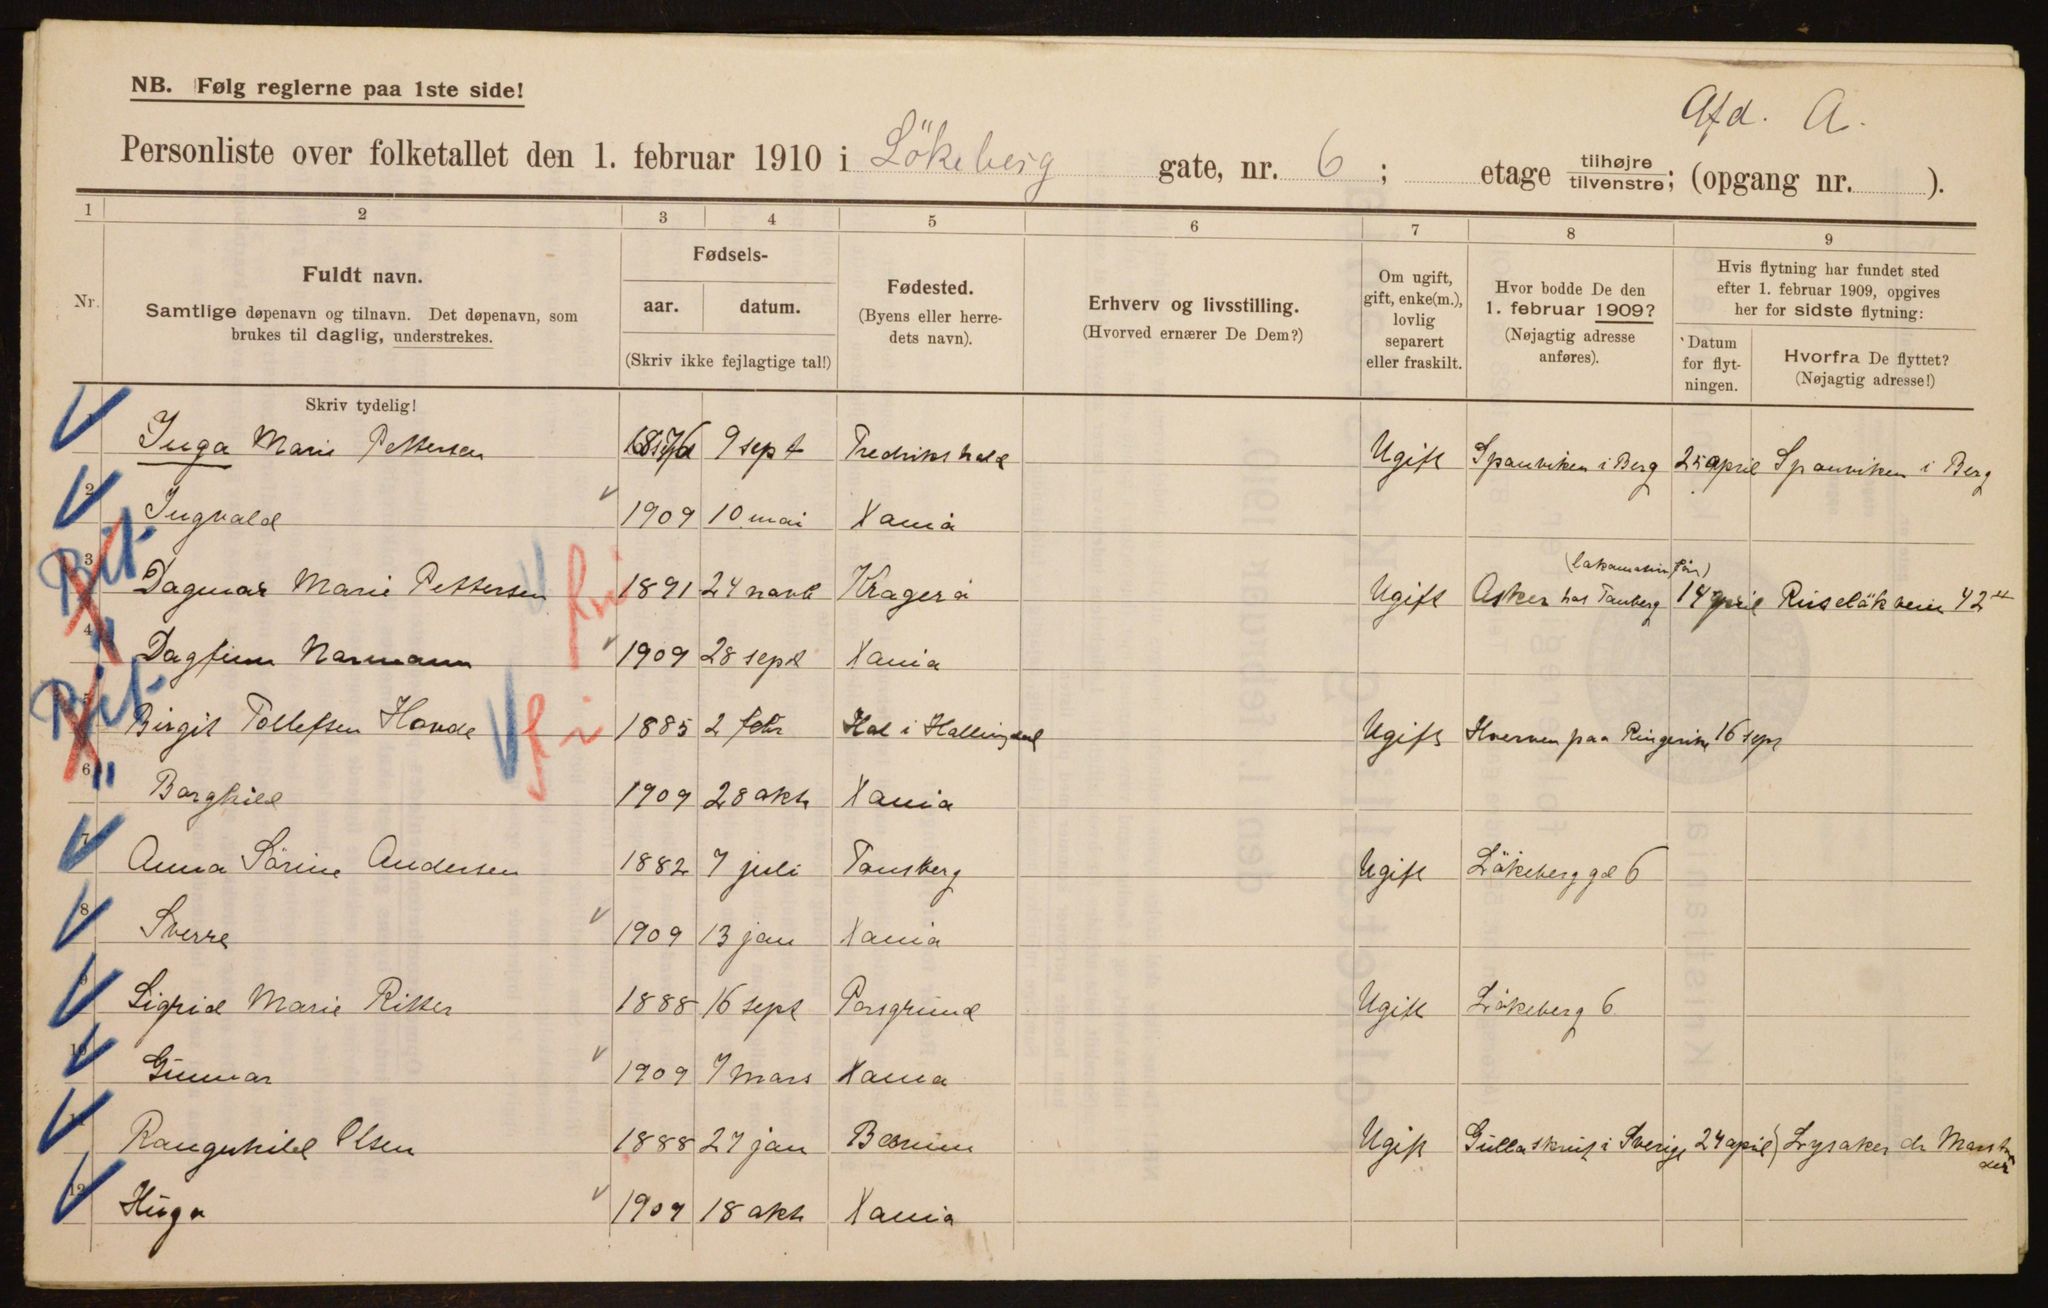 Afd. A.
NB. Følg reglerne paa 1ste side!
Personliste over folketallet den 1. februar 1910 i Lökeberg gate, nr. 6 ; etage tilhøjre/tilvenstre; (opgang nr. ).
1 2 3 4 5 6 7 8 9
Nr.
Fuldt navn.
Samtlige døpenavn og tilnavn. Det døpenavn, som
brukes til daglig, understrekes.
Skriv tydelig!
Fødsels-
aar. datum.
(Skriv ikke fejlagtige tal!)
Fødested.
(Byens eller herre-
dets navn).
Erhverv og livsstilling.
(Hvorved ernærer De Dem?)
Om ugift,
gift, enke(m.),
lovlig
separert
eller fraskilt.
Hvor bodde De den
1. februar 1909?
(Nøjagtig adresse
anføres).
Hvis flytning har fundet sted
efter 1. februar 1909, opgives
her for sidste flytning:
Datum
for flyt-
ningen.
Hvorfra De flyttet?
(Nøjagtig adresse!)
1 Inga Marie Pettersen 9 sept Fredrikshald Ugift Spanviken i Berg 25 april Spanviken i Berg
2 Ingvald 1909 10 mai Xania
3 Dagmar Marie Pettersen fri 1891 24 novb Kragerö Ugift Asker hos Tanberg 14 april Ruselökvein 42
4 Dagfinn Normann 1909 28 sept Xania
5 Birgit Tollefsen Hovde fri 1885 2 febr Hol i Hallingdal Ugift Hverven paa Ringerike 16 sept
6 Borghild 1909 28 okt Xania
7 Anna Sörine Andersen 1882 7 juli Tönsberg Ugift Lökeberg gd 6
8 Sverre 1909 13 jan Xania
9 Sigrid Marie Ritter 1888 16 sept Porsgrund Ugift Lökeberg 6
10 Gunnar 1909 7 mars Xania
11 Rangnhild Olsen 1888 27 jan Bærum Ugift Gullaskruf i Sverige 24 april Lysaker dr
12 Hugo 1909 18 okt Xania